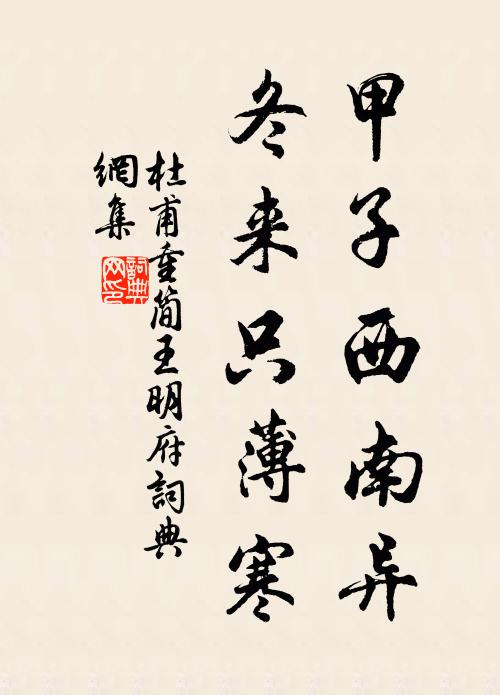 甲子西南异
冬来只薄寒
杜甫重简王明府詞典
網集
詞典
网印